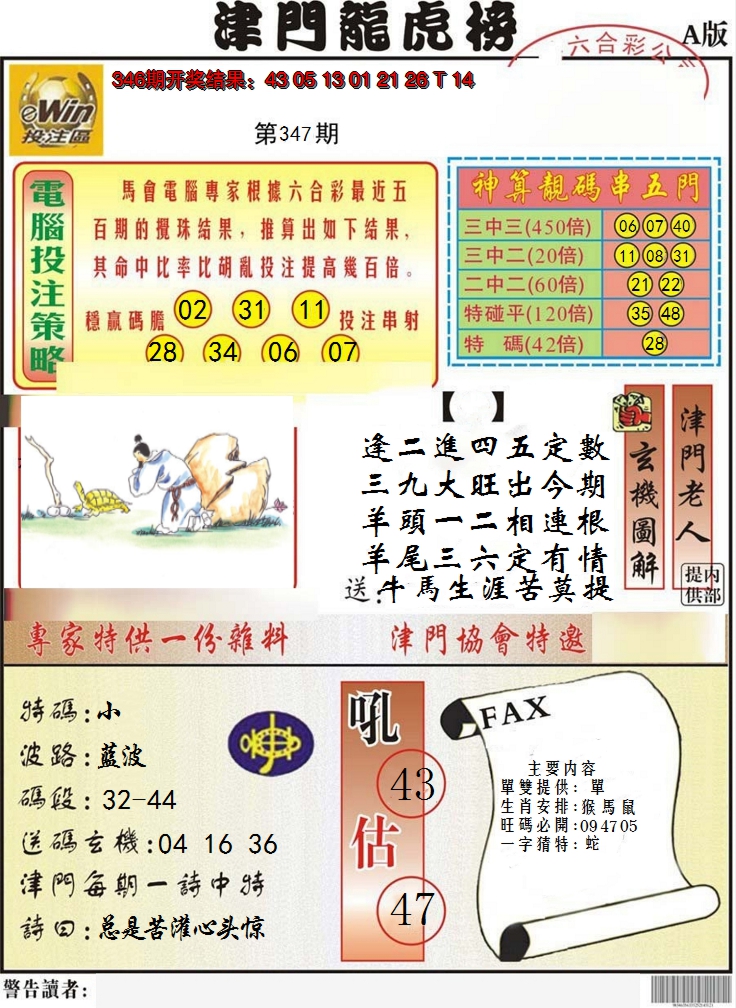 津門龍虎榜
A版
六合彩公
346期开奖结果：43 05 13 01 21 26 T 14
eWin
投注區
第347期
電腦投注策略
馬會電腦專家根據六合彩最近五
百期的攪珠结果，推算出如下结果，
其命中比率比胡亂投注提高幾百倍。
穩贏碼膽 02 31 11 投注串射
28 34 06 07
神算靚碼串五門
三中三(450倍) 06 07 40
三中二(20倍) 11 08 31
二中二(60倍) 21 22
特碰平(120倍) 35 48
特 碼(42倍) 28
【 】
逢二進四五定數
三九大旺出今期
羊頭一二相連根
羊尾三六定有情
送:牛馬生涯苦莫提
玄機圖解
津門老人
内部提供
專家特供一份雜料
津門協會特邀
特碼:小
波路:藍波
碼段:32-44
送碼玄機:04 16 36
津門每期一詩中特
詩曰:总是苦灌心头惊
吼
43
估
47
FAX
主要内容
單雙提供：單
生肖安排:猴馬鼠
旺碼必開:094705
一字猜特:蛇
警告讀者: